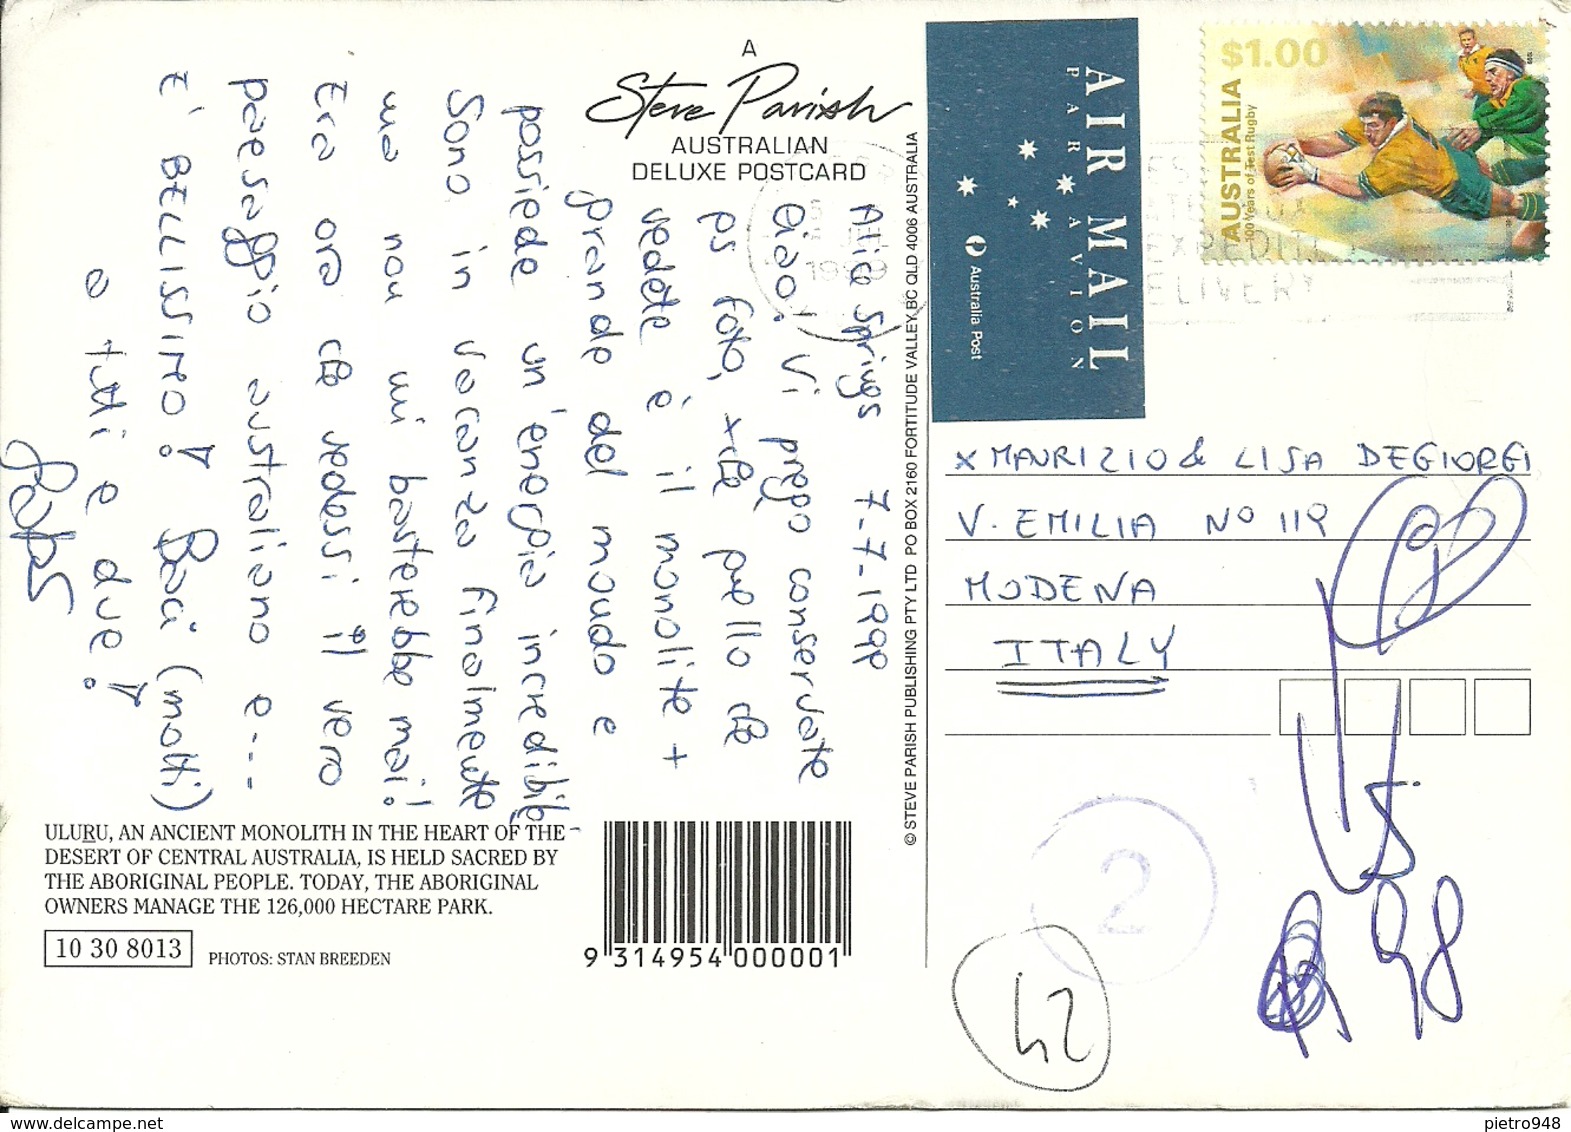 A
Steve Parish
AUSTRALIAN
DELUXE POSTCARD
Alice Springs 7-7-1999
Ciao! Vi prego conservate
ps foto, xché quello che
vedete è il monolite +
grande del mondo e
possiede un'energia incredibile
Sono in vacanza finalmente
ma non mi basterebbe mai!
Era ora che vedessi il vero
paesaggio australiano e...
E' BELLISSIMO! Baci (molti)
a tutti e due!
ULURU, AN ANCIENT MONOLITH IN THE HEART OF THE
DESERT OF CENTRAL AUSTRALIA, IS HELD SACRED BY
THE ABORIGINAL PEOPLE. TODAY, THE ABORIGINAL
OWNERS MANAGE THE 126,000 HECTARE PARK.
10 30 8013
PHOTOS: STAN BREEDEN
9 314954 000001
© STEVE PARISH PUBLISHING PTY LTD PO BOX 2160 FORTITUDE VALLEY, BC QLD 4006 AUSTRALIA
AIR MAIL
PAR AVION
Australia Post
$1.00
AUSTRALIA
100 Years of Test Rugby
1999
DELIVERY
x MAURIZIO & LISA DEGIORGI
V. EMILIA Nº 119
MODENA
ITALY
2
42
98
pietro948